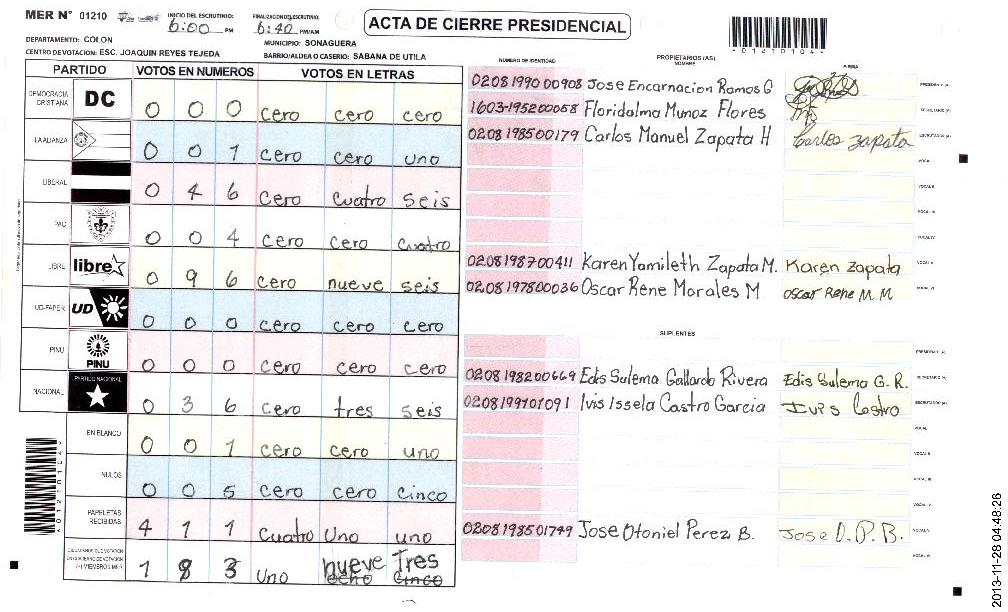 MER N° 01210 INICIO DEL ESCRUTINIO: 6:00 PM FINALIZACION DEL ESCRUTINIO: 6:40 PM/AM
ACTA DE CIERRE PRESIDENCIAL
*01210104*
DEPARTAMENTO: COLON MUNICIPIO: SONAGUERA
CENTRO DE VOTACION: ESC. JOAQUIN REYES TEJEDA BARRIO/ALDEA O CASERIO: SABANA DE UTILA
PARTIDO VOTOS EN NUMEROS VOTOS EN LETRAS
DEMOCRACIA CRISTIANA DC 0 0 0 cero cero cero
LA ALIANZA 0 0 1 cero cero uno
LIBERAL 0 4 6 cero cuatro seis
PAC 0 0 4 cero cero cuatro
LIBRE libre 0 9 6 cero nueve seis
UD-FAPER UD 0 0 0 cero cero cero
PINU PINU 0 0 0 cero cero cero
NACIONAL PARTIDO NACIONAL 0 3 6 cero tres seis
EN BLANCO 0 0 1 cero cero uno
NULOS 0 0 5 cero cero cinco
PAPELETAS RECIBIDAS 4 1 1 cuatro uno uno
CIUDADANOS QUE VOTARON
(+) MIEMBROS MER 1 3 uno nueve Tres
ocho cinco
NUMERO DE IDENTIDAD PROPIETARIOS (AS) NOMBRE FIRMA
0208199000908 Jose Encarnacion Ramos G PRESIDENTE (A)
1603-195200058 Floridalma Munoz Flores SECRETARIO (A)
0208198500179 Carlos Manuel Zapata H Carlos Zapata ESCRUTADOR (A)
VOCAL I
VOCAL II
VOCAL III
VOCAL IV
0208198700411 Karen Yamileth Zapata M. Karen Zapata VOCAL V
0208197800036 Oscar Rene Morales M Oscar Rene M.M VOCAL VI
SUPLENTES
PRESIDENTE (A)
0208198200669 Edis Sulema Gallardo Rivera Edis Sulema G. R. SECRETARIO (A)
0208199101091 Ivis Issela Castro Garcia Ivis Castro ESCRUTADOR (A)
VOCAL I
VOCAL II
VOCAL III
VOCAL IV
0208198501749 Jose Otoniel Perez B. Jose O. P. B. VOCAL V
VOCAL VI
*01210104*
2013-11-28 04:48:26